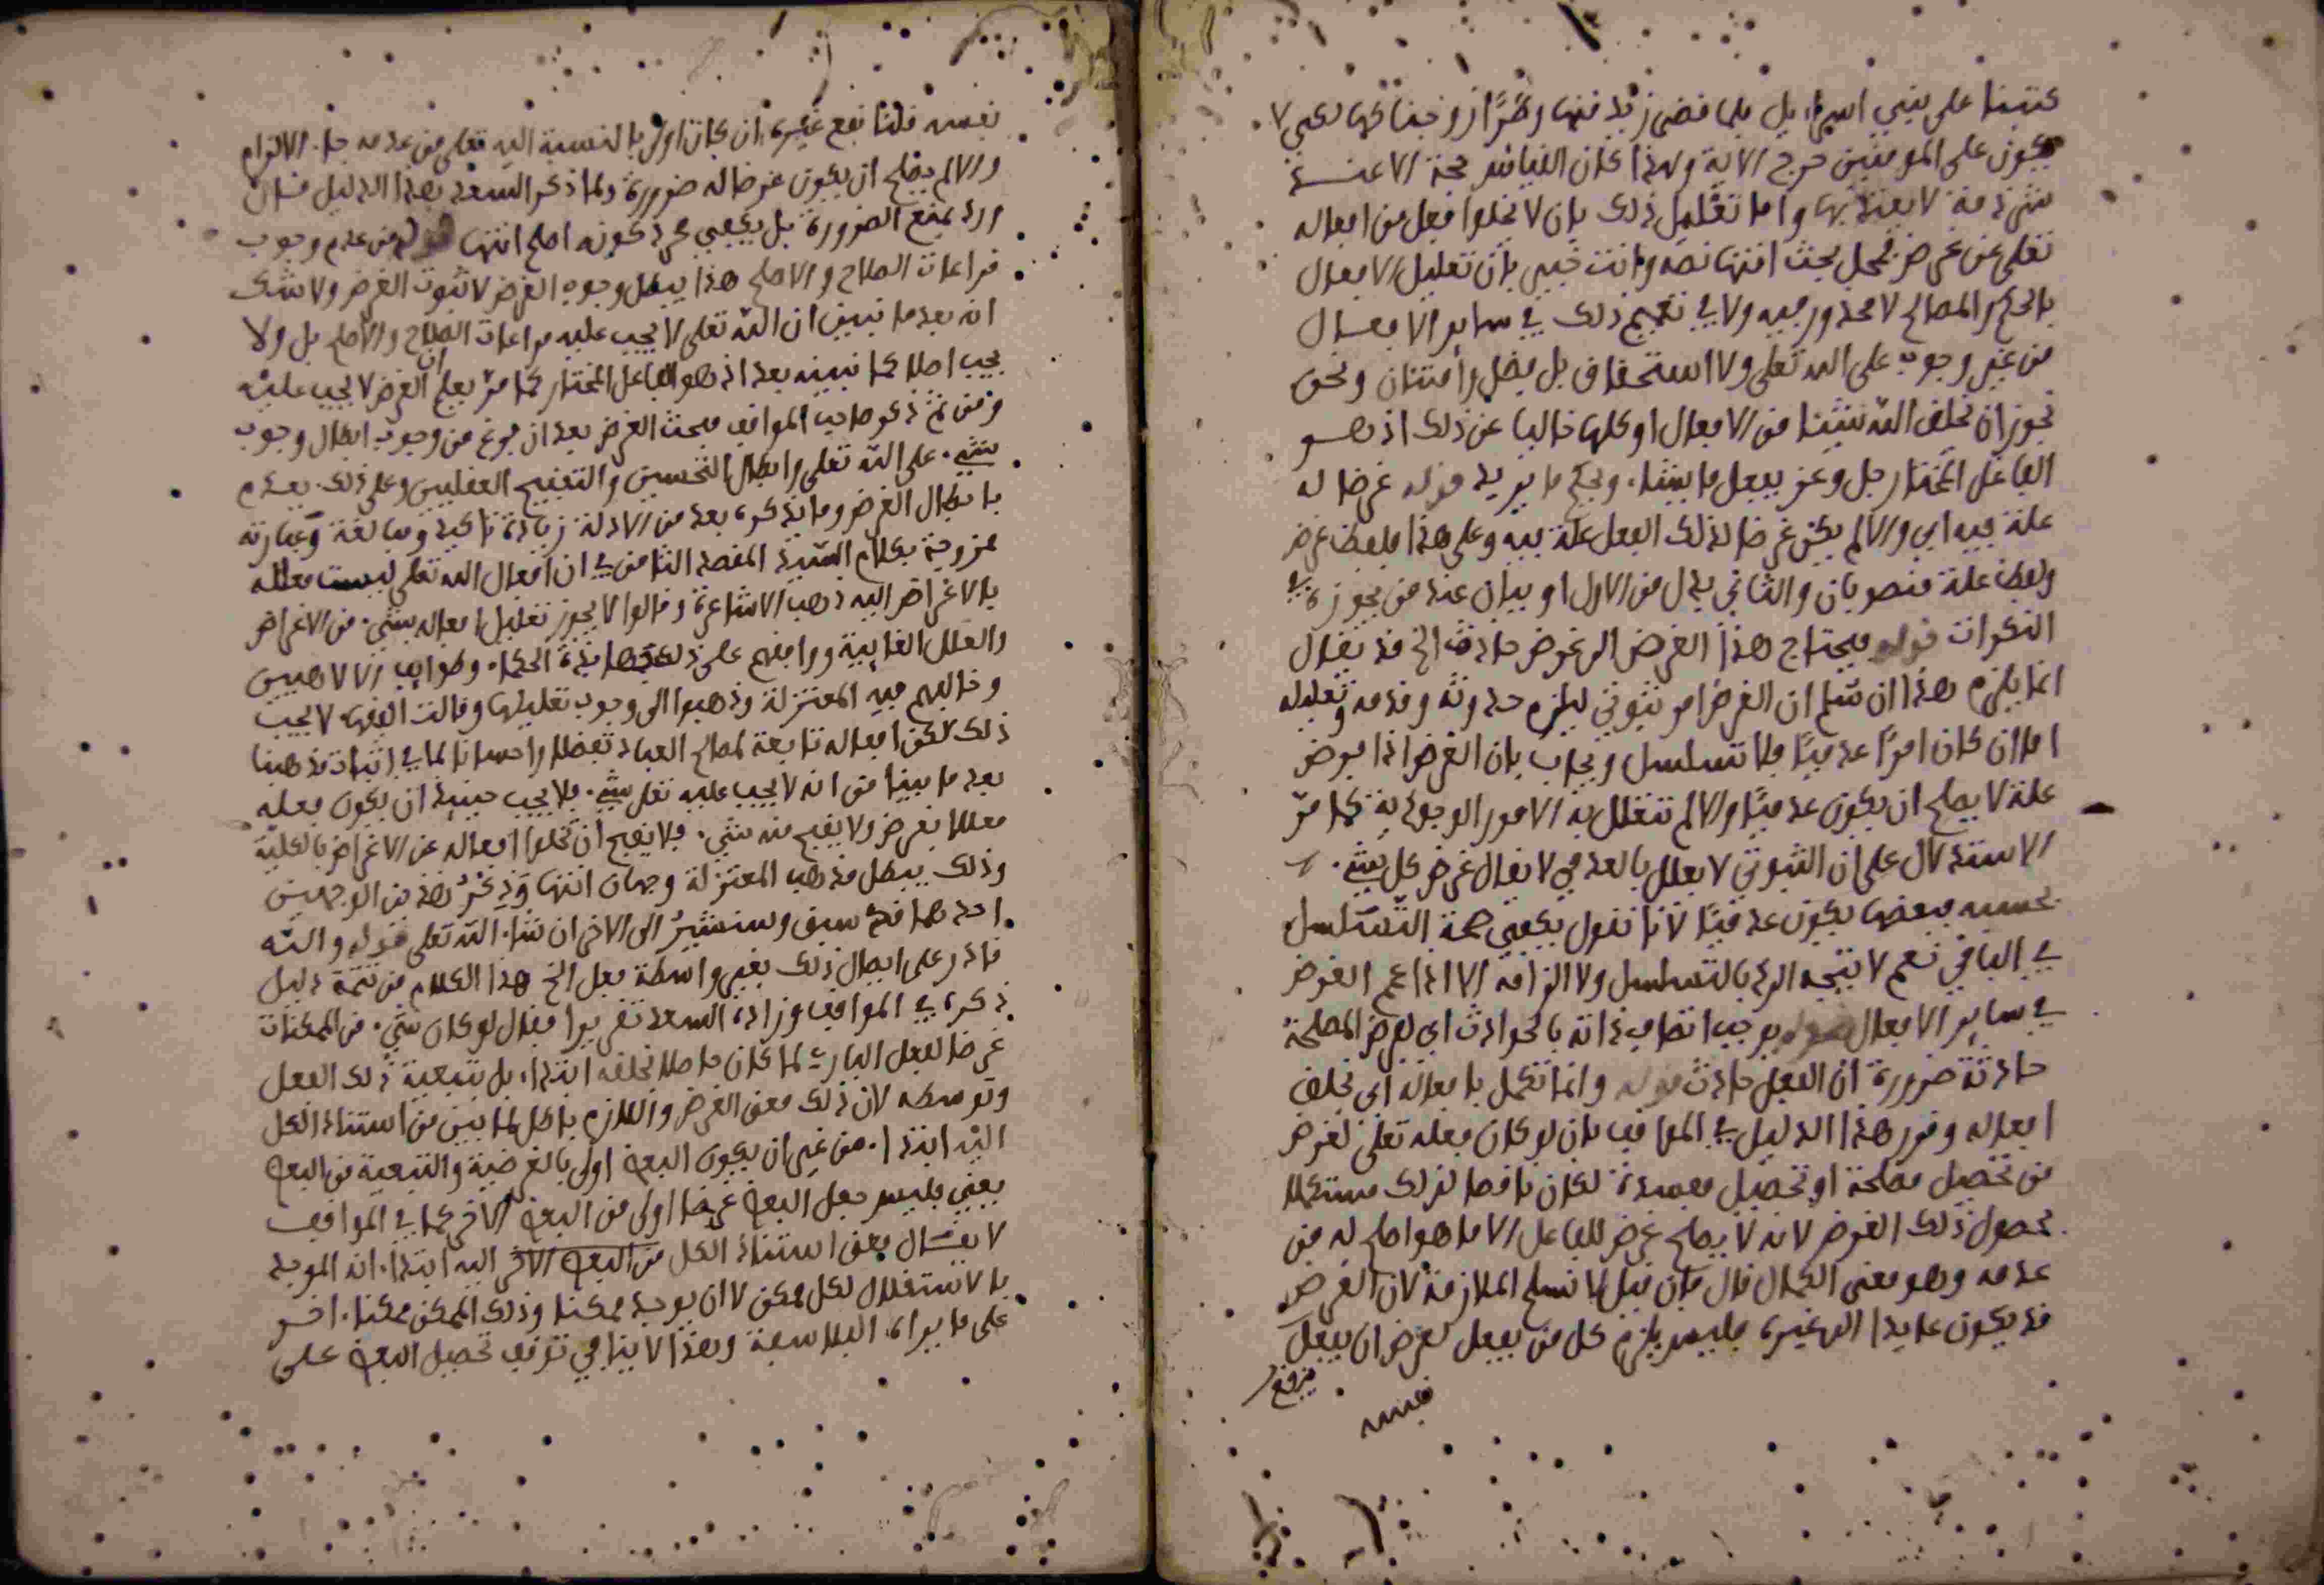 كتبنا على بني اسراءيل فلما قضى زيد منها وطرًا زوجناكها لكي لا
يكون على المومنين حرج الاية ولهذا كان القياس حجة الا عند
شرذمة لا يعتد بها واما تعليل ذلك بان لا يخلوا فعل من افعاله
تعلى عن غرض فمحل بحث انتهى نصه وانت خبير بان تعليل الافعال
بالحكم والمصالح لا محذور فيه ولا في تعميم ذلك في ساير الافعال
من غير وجوب على الله تعلى ولا استحقاق بل فضل وامتنان ونحن
نجوز ان يخلق الله شيئا من الافعال او كلها خاليا عن ذلك اذ هو
الفاعل المختار جل وعز يفعل ما يشاء ويحكم ما يريد قوله غرضا له
علة فيه اي والا لم يكن غرضا لذلك الفعل علة فيه وعلى هذا فلفظ غرض
ولفظ علة منصوبان والثاني بدل من الاول او بيان عند من يجوزه في
النكرات قوله فيحتاج هذا الغرض الى غرض حادث الخ قد يقال
انما يلزم هذا ان سلم ان الغرض امر ثبوتي ليلزم حدوثه وقدمه وتعليله
اما ان كان امرًا عدميًا فلا تسلسل ويجاب بان الغرض اذا فرض
علة لا يصلح ان يكون عدميًا والا لم تتعلل به الامور الوجودية كما مر
الاستدلال على ان الثبوتي لا يعلل بالعدمي لا يقال غرض كل شيء
بحسبه فبعضها يكون عدميًا لانا نقول يكفي صحة التسلسل
في الباقي نعم لا يتجه الرد بالتسلسل ولا الزامه الا اذا عم الغرض
في ساير الافعال قوله يوجب اتصاف ذاته بالحوادث اي لغرض المصلحة
حادثة ضرورة ان الفعل حادث قوله وانما تكمل بافعاله اي بخلق
افعاله وقرر هذا الدليل في المواقف بان لو كان فعله تعلى لغرض
من تحصيل مصلحة او تحصيل مفسدة لكان ناقصا لذلك مستكملا
بحصول ذلك الغرض لانه لا يصلح غرض للفاعل الا ما هو اصلح له من
عدمه وهو معنى الكمال قال فان قيل لا نسلم الملازمة لان الغرض
قد يكون عايدا الى غيره فليس يلزم كل من يفعل لغرض ان يفعل
نفسه
نفسه قلنا نفع غيره ان كان اولى بالنسبة اليه تعلى من عدمه جاء الالزام
والا لم يصلح ان يكون غرضا له ضرورة ولما ذكر السعد هذا الدليل قال
ورد بمنع الضرورة بل يكفي مجرد كونه اصلح انتهى قوله من عدم وجوب
مراعات الصلاح والاصلح هذا يبطل وجوب الغرض لا ثبوت الغرض ولا شك
انه بعد ما نبين ان الله تعلى لا يجب عليه مراعات الصلاح والاصلح بل ولا
يجب اصلا كما نبينه بعد اذ هو الفاعل المختار كما مر يعلم ان الغرض لا يجب عليه
ومن ثم ذكر صاحب المواقف مبحث الغرض بعد ان فرغ من وجوب ابطال وجوب
شيء على الله تعلى وابطال التحسين والتقبيح العقليين وعلى ذلك يعلم
بابطال الغرض وما يذكره بعد من الادلة زيادة تاكيد ومبالغة وعبارته
ممزوجة بكلام السيد المقصد الثامن في ان افعال الله تعلى ليست معللة
بالاغراض اليه ذهب الاشاعرة وقالوا لا يجوز تعليل افعاله بشيء من الاغراض
والعلل الغايية ووافقهم على ذلك جهابذة الحكماء وطوايف الالاهيين
وخالفهم فيه المعتزلة وذهبوا الى وجوب تعليلها وقالت الفقهاء لا يجب
ذلك لكن افعاله تابعة لمصالح العباد تفضلا واحسانا لما في اثبات مذهبنا
بعد ما بينا من انه لا يجب عليه تعلى شيء فلا يجب حينيذ ان يكون فعله
معللا بغرض ولا يقبح منه شيء فلا يقبح ان تخلوا افعاله عن الاغراض بالكلية
وذلك يبطل مذهب المعتزلة وجهان انتهى وذكر هذين الوجهين
احدهما قد سبق وسنشير الى الاخر ان شاء الله تعلى قوله والله
قادر على ايصال ذلك بغير واسطة فعل الخ هذا الكلام من تتمة دليل
ذكره في المواقف وزاده السعد تقريرا فقال لو كان شيء من الممكنات
غرضا لفعل الباري لما كان حاصلا بخلقه ابتداء بل بتبعية ذلك الفعل
وتوسطه لان ذلك معنى الغرض واللازم باطل لما بين من استناد الكل
اليه ابتداء من غير ان يكون البعض اولى بالغرضية والتبعية من البعض
يعني فليس جعل البعض غرضا اولى من البعض الاخر كما في المواقف
لا يقال معنى استناد الكل من البعض الاخر اليه ابتداء انه الموجد
بالاستقلال لكل ممكن لا ان يوجد ممكنا وذلك الممكن ممكنا اخر
على ما يراه الفلاسفة وهذا لا ينافي توقف تحصيل البعض على